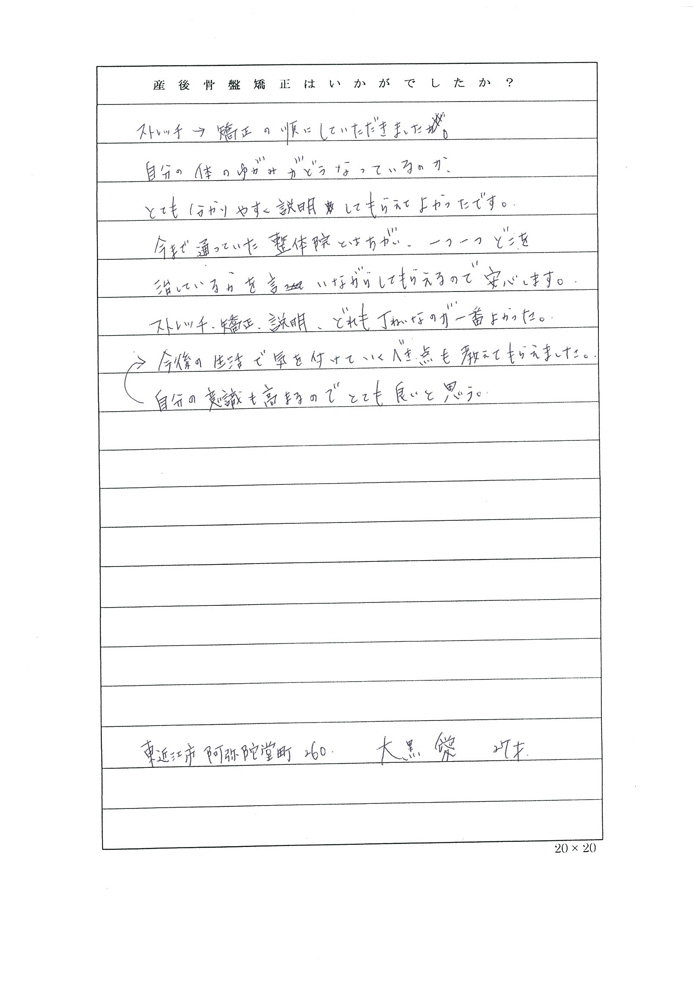 産後骨盤矯正はいかがでしたか？
ストレッチ→矯正の順にしていただきました。
自分の体のゆがみがどうなっているのか、
とても分かりやすく説明してもらえてよかったです。
今まで通っていた整体院とはちがい、一つ一つどこを
治しているかを言いながらしてもらえるので安心します。
ストレッチ、矯正、説明、どれもていねいなのが一番よかった。
→今後の生活で気を付けていくべき点も教えてもらえました。
自分の意識も高まるのでとても良いと思う。
東近江市阿弥陀堂町260. 大黒 27才.
20×20